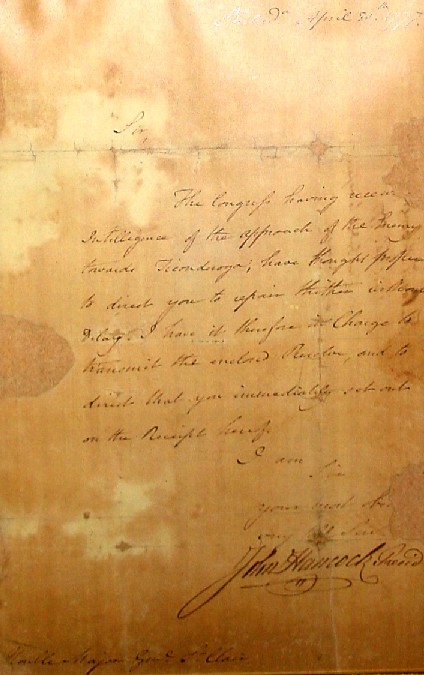 April 30th 1777.
Sir,
The Congress having recei
Intelligence of the approach of the Enemy
towards Ticonderoga, have thought proper
to direct you to repair thither without
Delay. I have it therefore in Charge to
transmit the enclosed Resolve, and to
direct that you immediately set out
on the Receipt hereof.
I am
Sir
your most obe
Ser
John Hancock Presid
Honble Major Genl. St. Clair